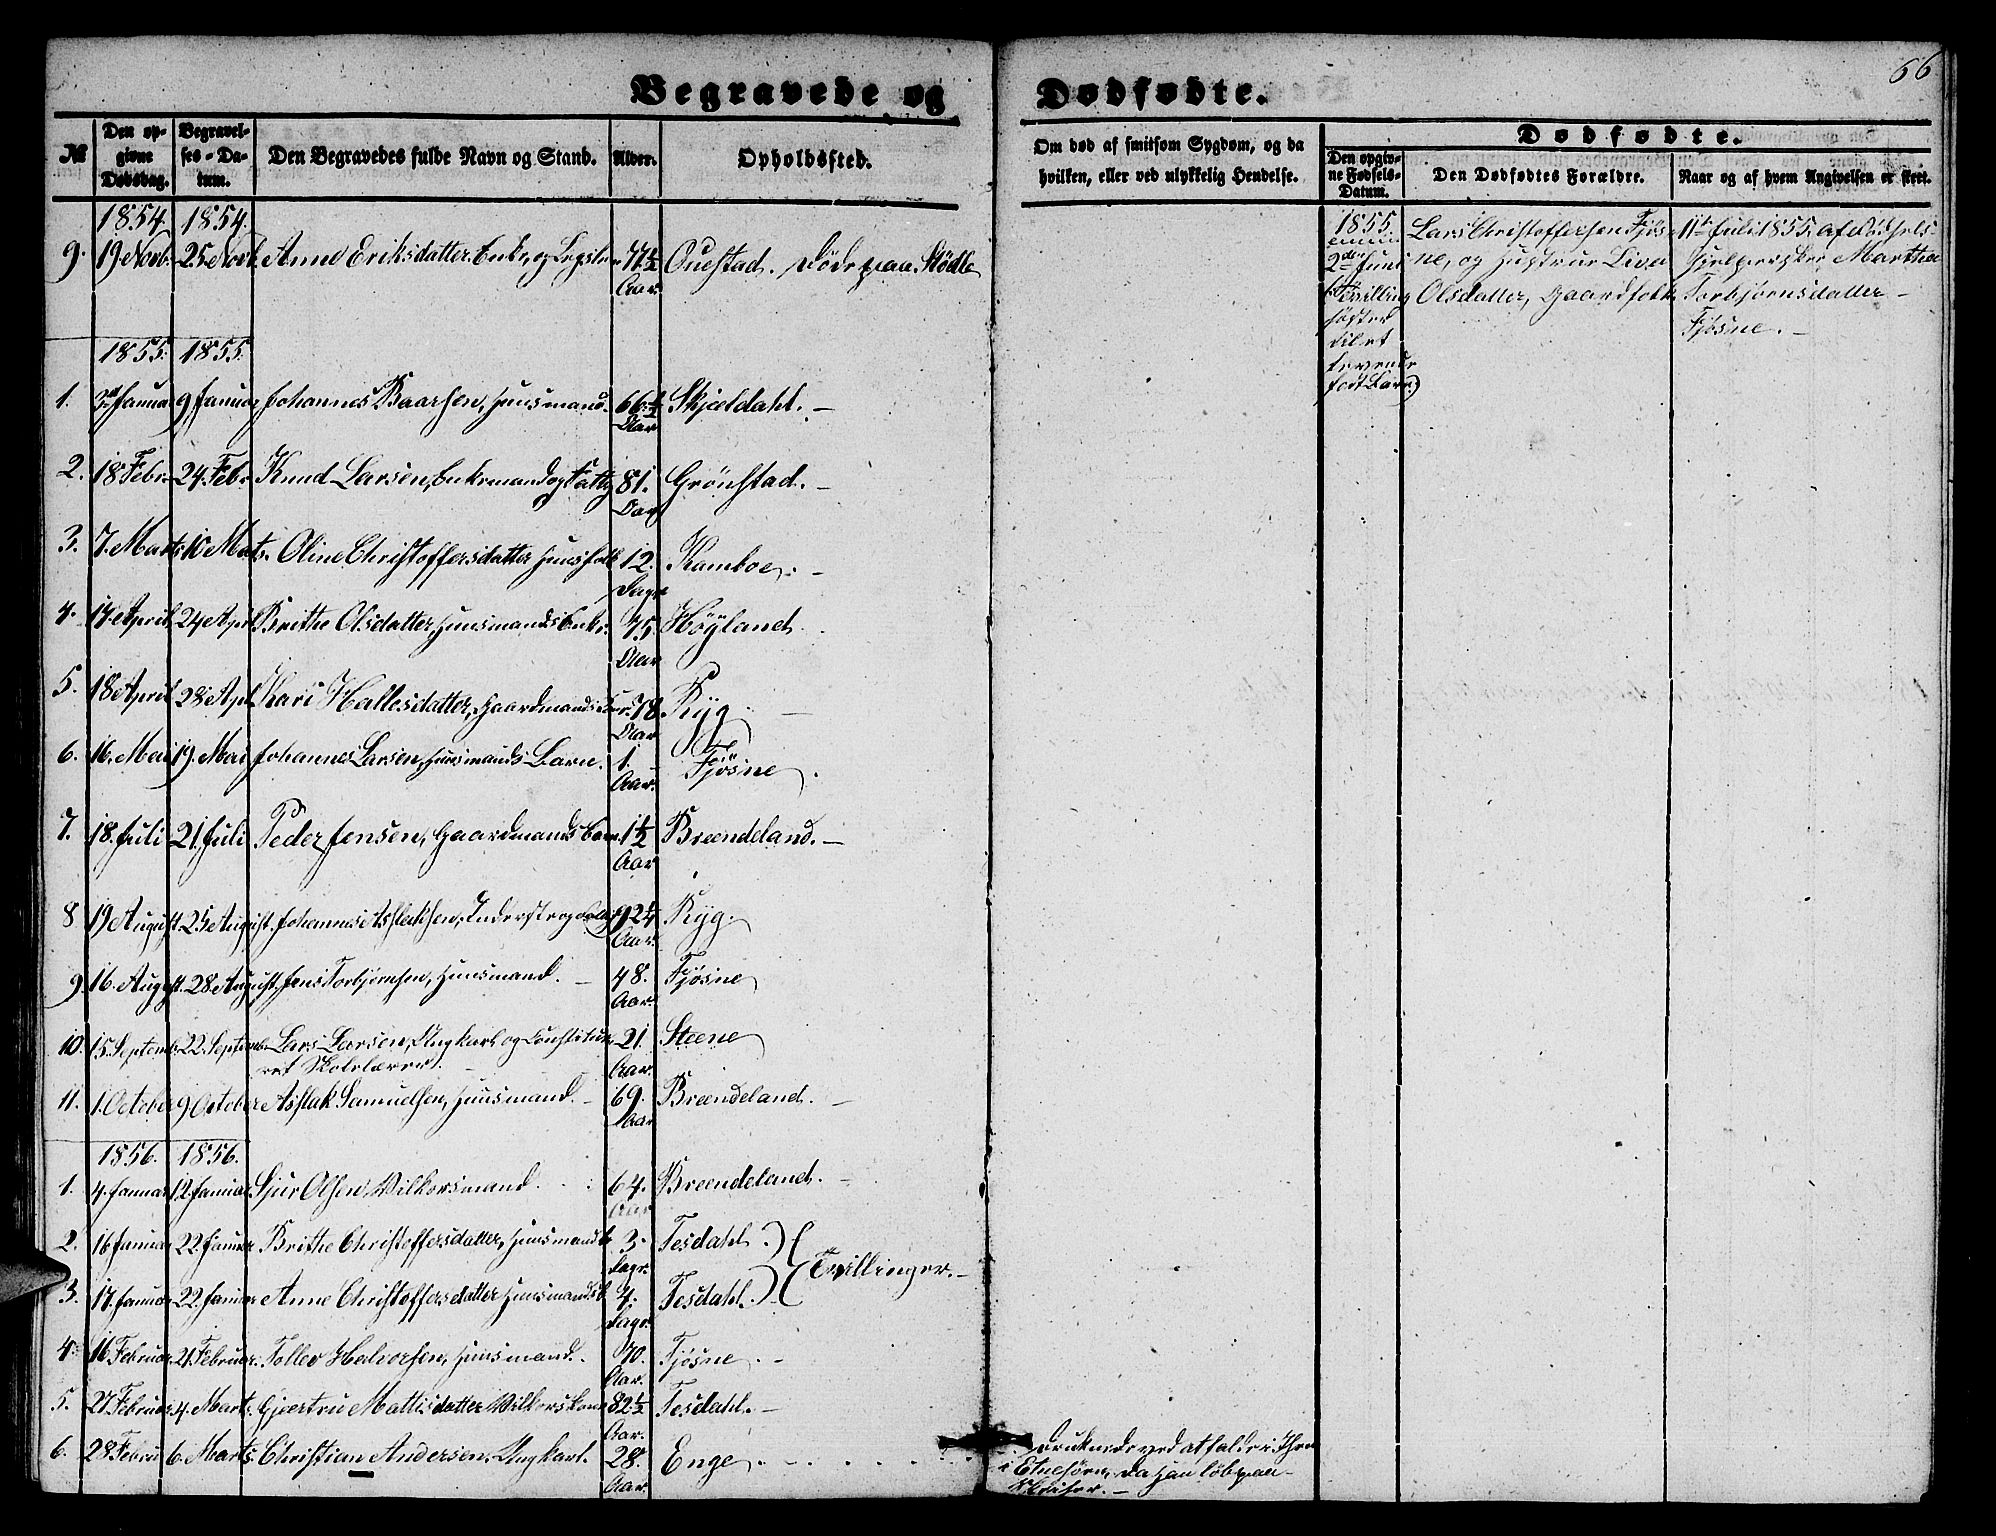 66
Begravede og Dødfødte.
№ Den opgivne Dødsdag. Begravelses-Datum. Den Begravedes fulde Navn og Stand. Alder. Opholdssted.
Om død af smitsom Sygdom, og da hvilken, eller ved ulykkelig Hendelse.
Dødfødte.
Den opgivne Fødsels-Datum. Den Dødfødtes Forældre. Naar og af hvem Angivelsen er skeet.
1854. 1854.
9. 19 Novb. 25 Novb. Anne Eriksdatter, Enke, og Legslem 77½ Aar. Ouestad. Døde paa Stödle
1855. 1855.
1. 3die Januar 9 Januar Johannes Baarsen, Huusmand. 66½ Aar Skjeldahl. –
2. 18 Febr. 24 Febr Knud Larsen, Enkemand og Fattig 81. Aar Grönstad. –
3. 7. Marts 10 Mats. Oline Christoffersdatter Huusfolk 12. Dage Kamboe. –
4. 14 April. 24 Apri Brithe Olsdatter, Huusmands Enke. 75. Aar Høyland
5. 18 April 28 Apl. Kari Hallesdatter, Gaardmands 78. Aar Ryg –
6. 16. Mai 19. Mai Johannes Larsen, Huusmands Barn. 1. Aar. Fjøsne.
7. 18. Juli 21. Juli Peder Jensen, Gaardmands Barn. 1½ Aar Breendeland. –
8 19 August. 25 August. Johannes Aslaksen, Inderst og 92¼ Aar. Ryg.
9. 16. August. 28 August. Jens Torbjørnsen, Huusmand. – 48. Aar. Fjøsne
10. 15. Septemb. 22. Septemb. Lars Larsen, Ungkarl og Constitue- 21. Aar. Steene
ret Skolelærer. –
11. 1. October 9 October Aslak Samuelsen, Huusmand. – 69. Aar Breendeland. –
1856. 1856.
1. 4. Januar 12 Januar Sjur Olsen, Vilkorsmand. 64. Aar Breendeland. –
2. 16 Januar 22. Januar Brithe Christoffersdatter, Huusmandsb 3. Dage. Tesdahl.
Tvillinger. –
3. 17. Januar 22. Januar Anne Christoffersdatter Huusmandsb. 4. Dage. Tesdahl.
4. 16 Februar. 21. Februar. Tollev Halvorsen, Huusmand. 70. Aar. Fjøsne. –
5. 27 Februar 4. Marts. Gjertru Mattisdatter Vilkorskone 82½ Aar. Tesdahl. –
6. 28. Februa 6. Marts. Christian Andersen. Ungkarl. 28. Aar. Enge.
Druknede ved at falde i
i Etnesøen, da han løb paa
Skøiser. –
1855.
2den Juni
(Tvilling
søster
til et
levende
født Barn)
Lars Christoffersen Fjøs-
ne, og Hustrue Liva
Olsdatter, Gaardfolk
11te Juli 1855 af Fødsels-
hjelperske Martha
Torbjørnsdatter –
Fjøsne. –